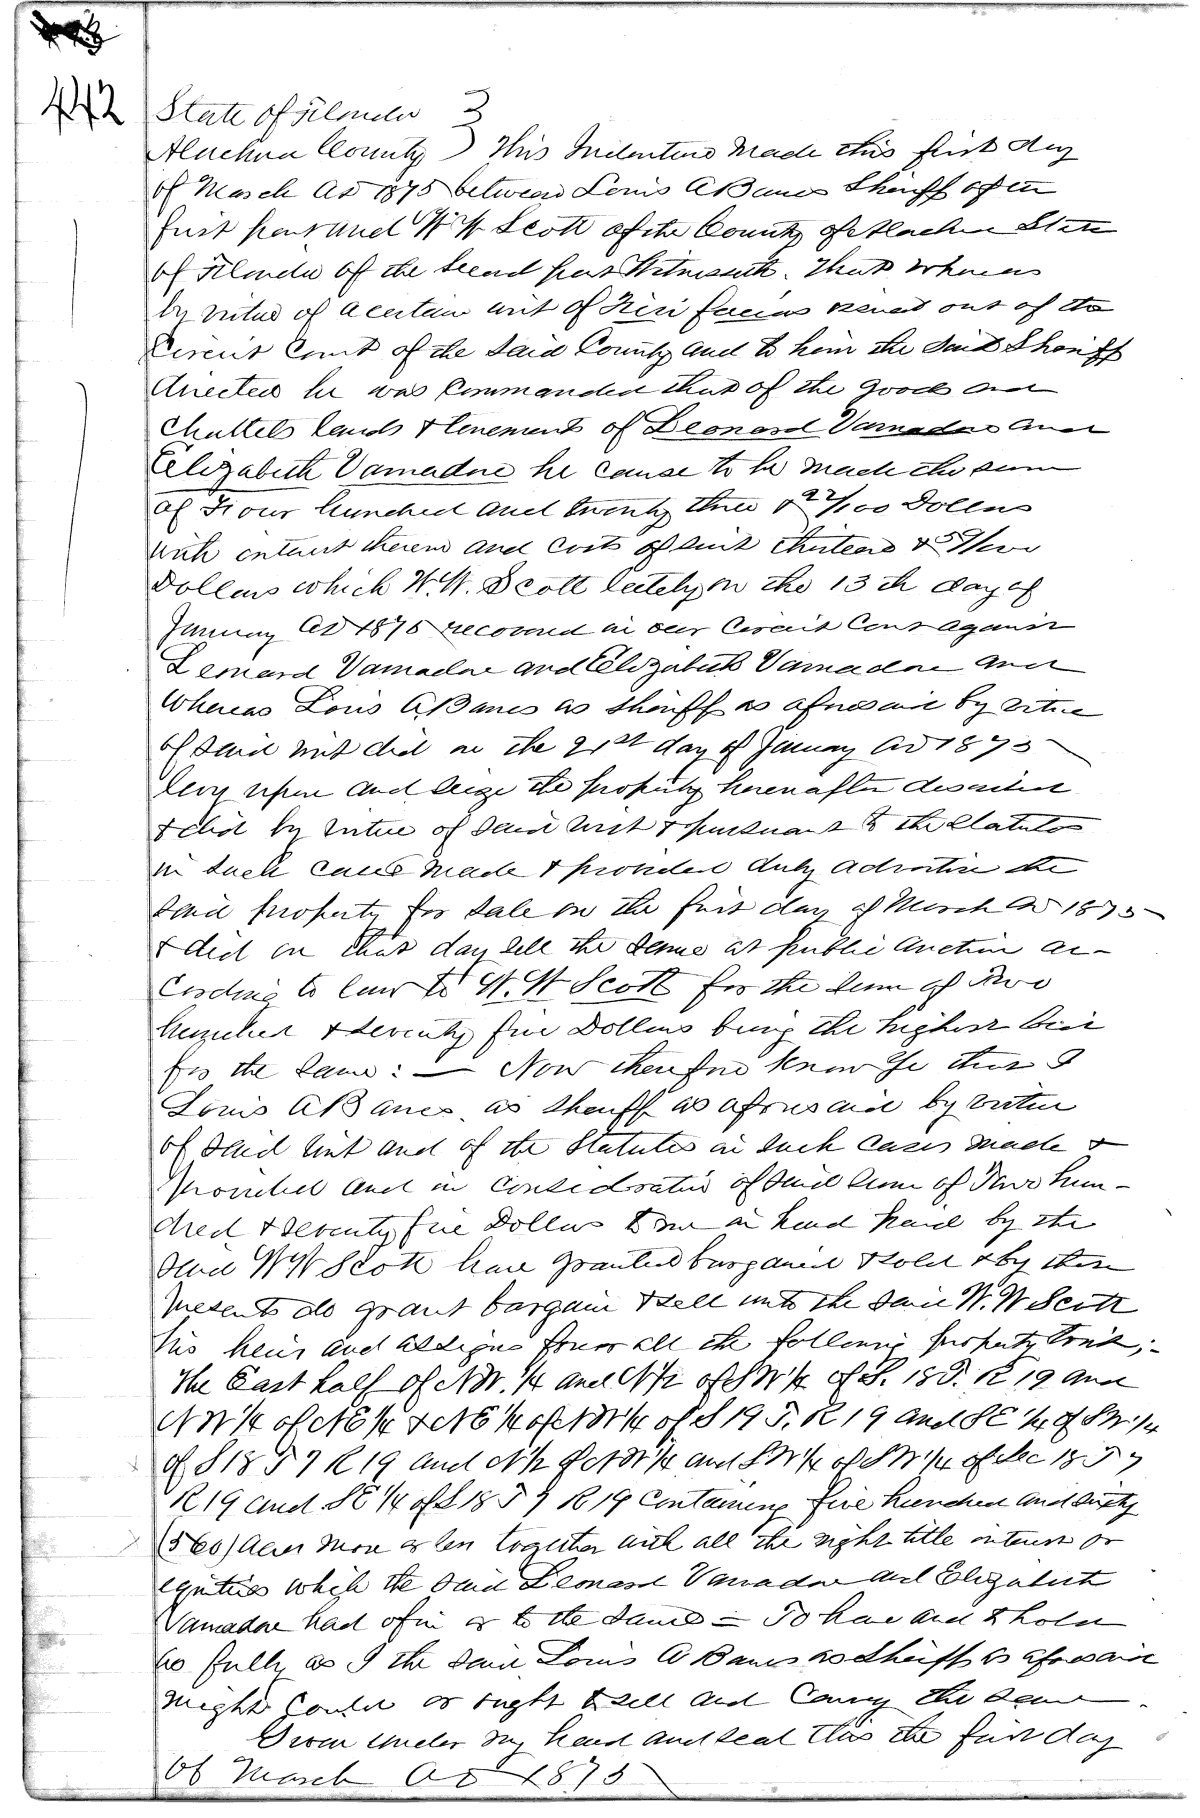 442
State of Florida }
Alachua County } This Indenture Made this first day
of March AD 1875 between Louis A Banes Sheriff of the
first part and W W Scott of the County of Alachua State
of Florida of the Second part Witnesseth. That whereas
by virtue of a certain writ of Fieri facias issued out of the
Circuit Court of the Said County and to him the said Sheriff
directed he was Commanded that of the goods and
Chattels lands & tenements of Leonard Varnadoe and
Elizabeth Varnadoe he cause to be made the sum
of Four hundred and twenty three & 92/100 Dollars
with interest thereon and costs of suit thirteen &
Dollars which W. W. Scott lately on the 13th day of
January AD 1875 recovered in our Circuit Court against
Leonard Varnadoe and Elizabeth Varnadoe and
Whereas Louis A. Banes as sheriff as aforesaid by virtue
of said writ did on the 21st day of January AD 1875
levy upon and seize the property hereinafter described
& did by virtue of said writ & pursuant to the Statutes
in such cases made & provided duly advertise the
said property for sale on the first day of March AD 1875
& did on that day sell the same at public auction ac-
cording to law to W. W Scott for the sum of Two
hundred & seventy five Dollars being the highest bid
for the same: — Now therefore Know Ye that I
Louis A Banes as sheriff as aforesaid by virtue
of said writ and of the Statutes in such cases made &
provided and in consideration of said sum of Two hun-
dred & seventy five Dollars to me in hand paid by the
said W W Scott have granted bargained & sold & by these
presents do grant bargain & sell unto the said W. W Scott
his heirs and assigns forever all the following property to wit;-
The East half of NW. 1/4 and N 1/2 of SW 1/4 of S. 18 T. R 19 and
NW 1/4 of NE 1/4 & NE 1/4 of NW 1/4 of S 19 T. R 19 and SE 1/4 of SW 1/4
of S 18 T 9 R 19 and N 1/2 of NW 1/4 and SW 1/4 of SW 1/4 of Sec 18 T 9
R 19 and SE 1/4 of S 18 T 9 R 19 Containing five hundred and sixty
(560) acres more or less together with all the right title interest or
equities which the said Leonard Varnadoe and Elizabeth
Varnadoe had of in or to the same = To have and to hold
as fully as I the said Louis A Banes as sheriff as aforesaid
might Could or ought to sell and Convey the same.
Given under my hand and seal this the first day
of March AD 1875